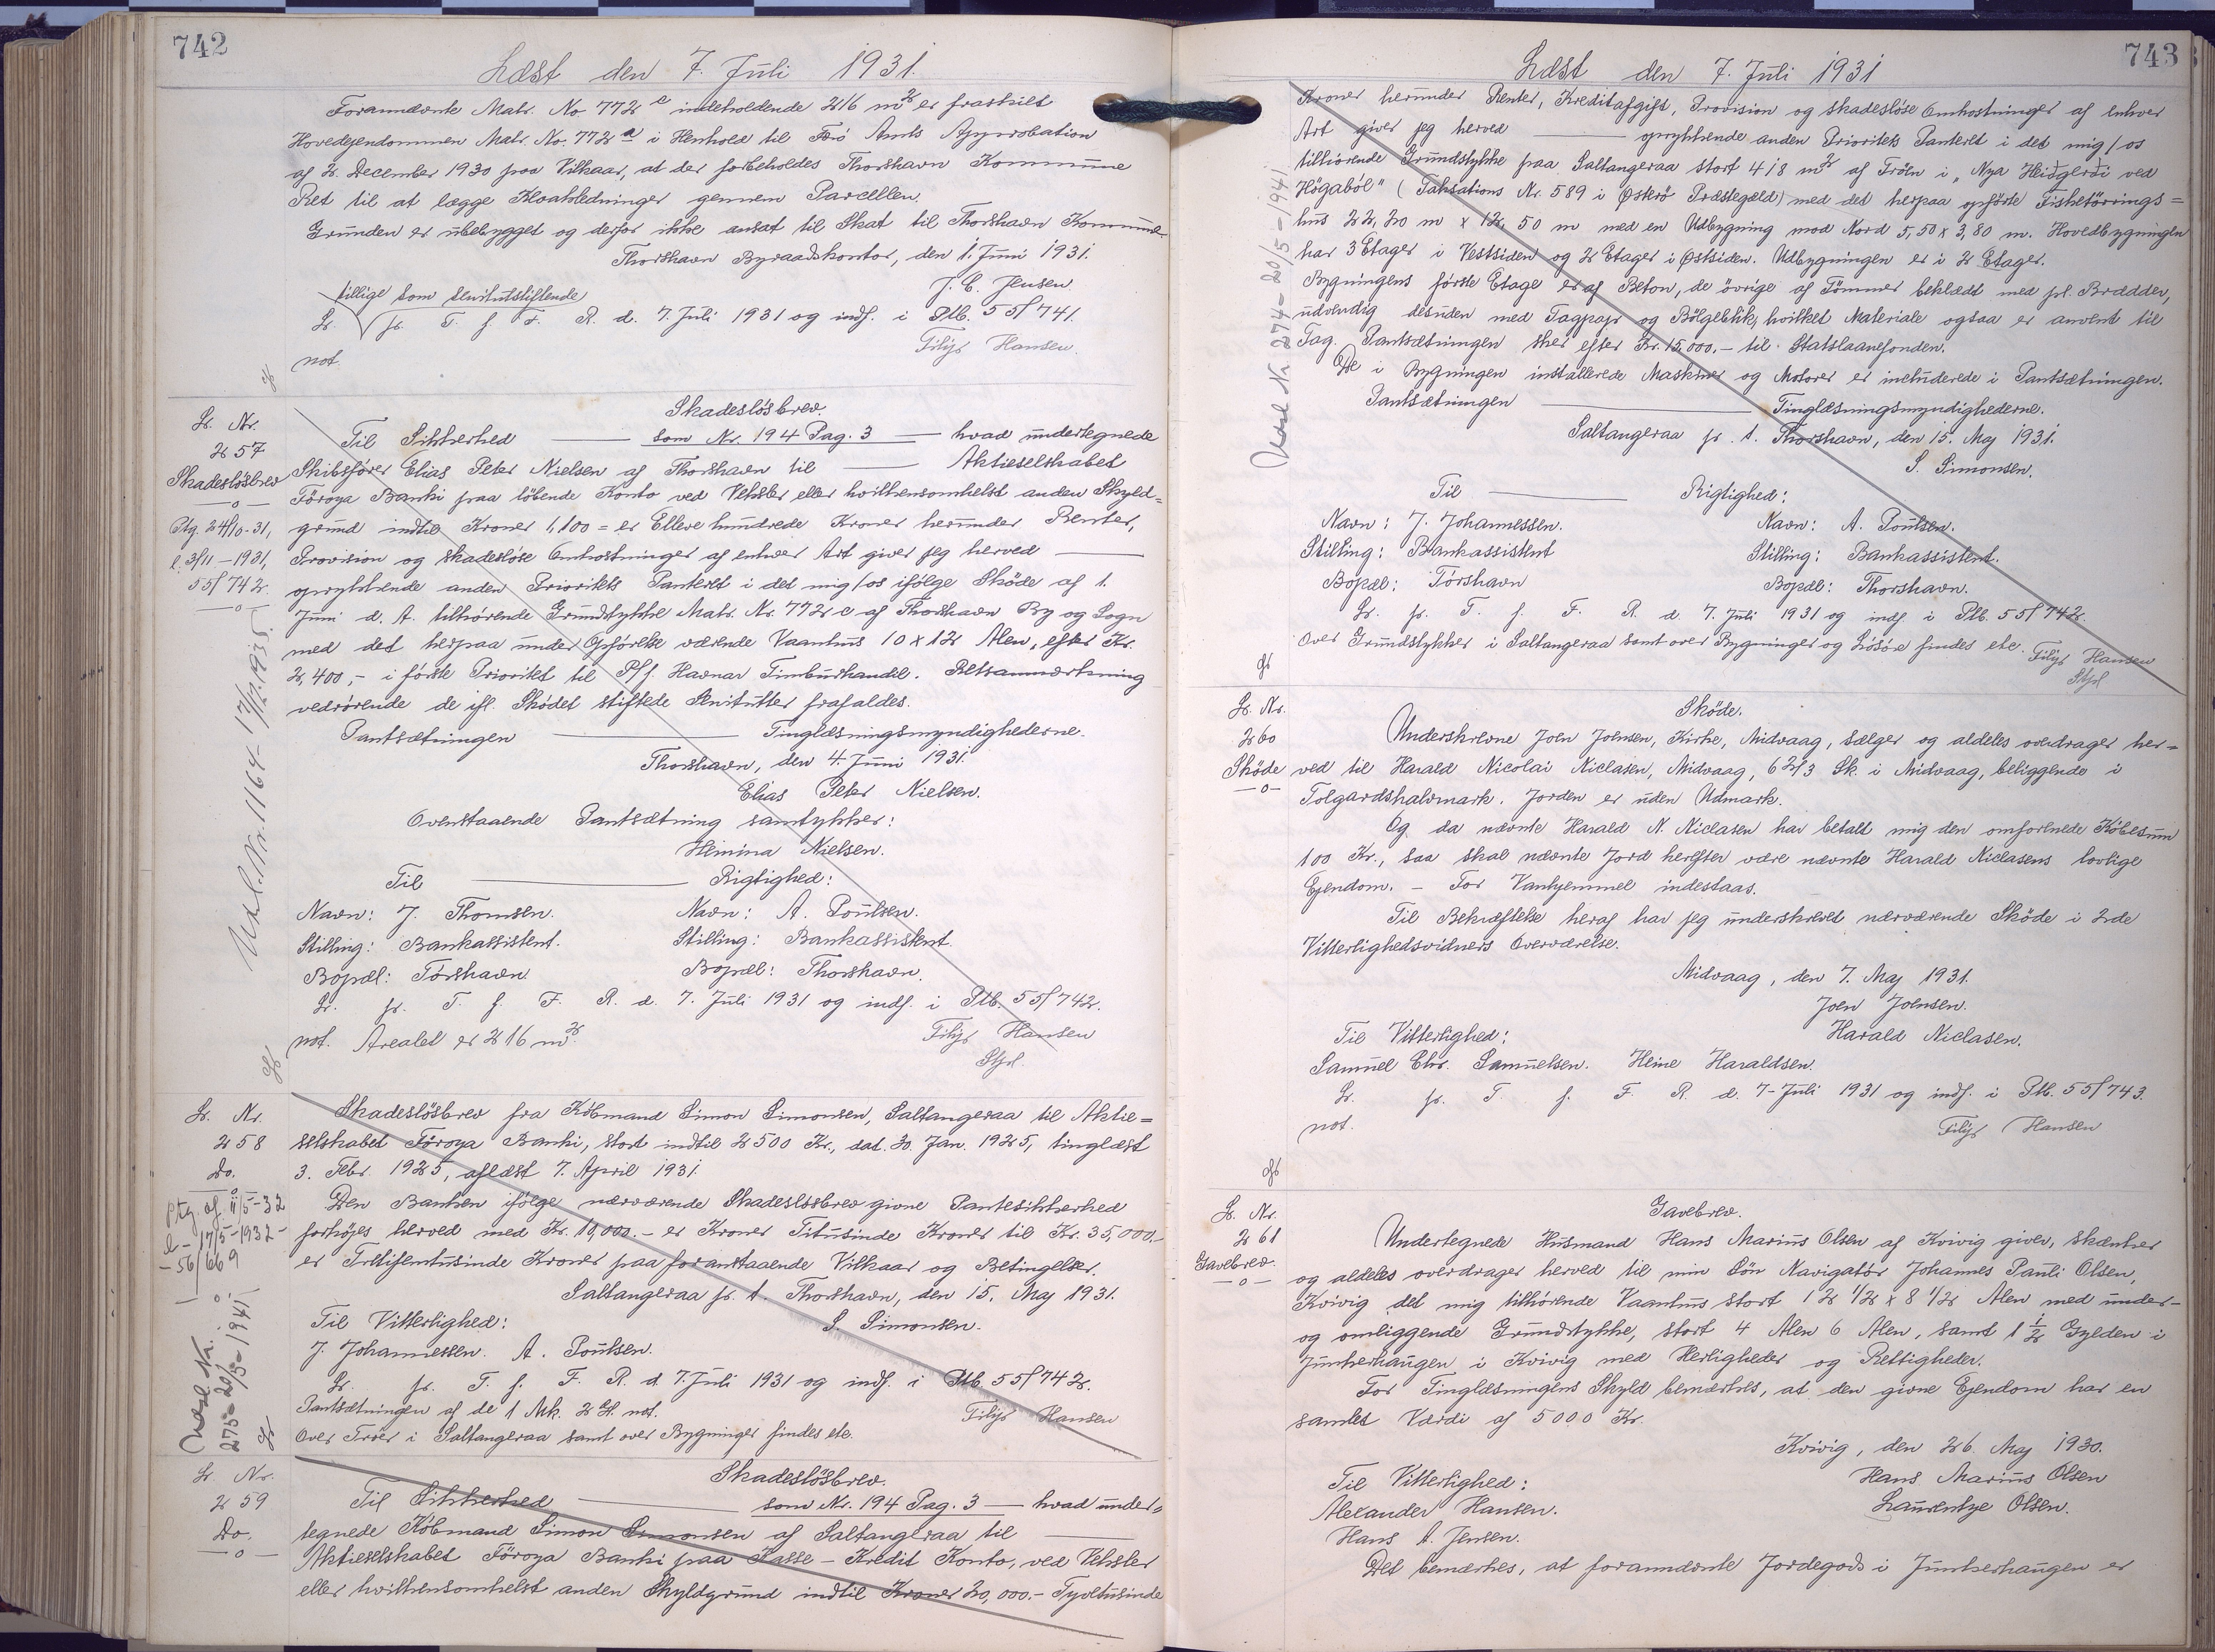 742
Læst den 7. Juli 1931.
Forannævnte Matr. No 772 c indeholdende 216 m² er fraskilt
Hovedejendommen Matr. No. 772 a i Henhold til Færø Amts Approbation
af 2. December 1930 paa Vilkaar, at der forbeholdes Thorshavn Kommune
Ret til at lægge Kloakledninger gennem Parcellen.
Grunden er ubebygget og derfor ikke ansat til Skat til Thorshavn Kommune.
Thorshavn Byraadskontor, den 1. Juni 1931.
J. C. Jensen.
tillige som servitutstiftende
Lr. pr. T. f. F. R. d. 7. Juli 1931 og indf. i Ptb. 55/741.
not.
Filip Hansen.
Lr. Nr.
257
Skadesløsbrev
Ptg. 24/10-31,
l. 3/11-1931,
55/742.
Udsl. Nr. 1164 - 17/12.1935.
Skadesløsbrev.
Til Sikkerhed som Nr. 194 Pag. 3 hvad undertegnede
Skibsfører Elias Peter Nielsen af Thorshavn til Aktieselskabet
Föroya Banki paa løbende Konto ved Veksler eller hvilkensomhelst anden Skyld=
grund indtil Kroner 1,100 = er Elleve hundrede Kroner herunder Renter,
Provision og skadesløse Omkostninger af enhver Art giver jeg herved
oprykkende anden Prioritets Panteret i det mig/os ifølge Skøde af 1.
Juni d. A. tilhørende Grundstykke Matr. Nr. 772 c af Thorshavn By og Sogn
med det herpaa under Opførelse værende Vaanhus 10 x 12 Alen, efter Kr.
2,400,- i første Prioritet til P/f. Havnar Timburhandil. Retsanmærkning
vedrørende de ifl. Skødet stiftede Servitutter frafaldes.
Pantsætningen Tinglæsningsmyndighederne.
Thorshavn, den 4. Juni 1931.
Elias Peter Nielsen.
Ovenstaaende Pantsætning samtykker:
Hemina Nielsen.
Til Rigtighed:
Navn: J. Thomsen. Navn: A. Poulsen.
Stilling: Bankassistent. Stilling: Bankassistent.
Bopæl: Tórshavn Bopæl: Thorshavn.
Lr. pr. T. f. F. R. d. 7. Juli 1931 og indf. i Ptb. 55/742.
not. Arealet er 216 m².
Filip Hansen
Stfsl.
Lr. Nr.
258
Do.
Ptg. af 11/5-32
l - 17/5-1932-
- 56/669
Udsl. Nr.
275 - 20/5-1941
Skadesløsbrev fra Købmand Simon Simonsen, Saltangeraa til Aktie=
selskabet Föroya Banki, stort indtil 2500 Kr., dat. 20. Jan. 1925, tinglæst
3. Febr. 1925, aflæst 7. April 1931.
Den Banken ifølge nærværende Skadesløsbrev givne Pantesikkerhed
forhøjes herved med Kr. 10,000.- er Kroner Titusinde Kroner til Kr. 35,000.-
er Trétifemtusinde Kroner paa foranstaaende Vilkaar og Betingelser.
Saltangeraa pr. t. Thorshavn, den 15. Maj 1931.
Til Vitterlighed: S. Simonsen.
J. Johannessen. A. Poulsen.
Lr. pr. T. f. F. R. d. 7. Juli 1931 og indf. i Ptb. 55/742.
Pantsætningen af de 1 Mk. 2 G. not.
Filip Hansen
Over Tröer i Saltangeraa samt over Bygninger findes etc.
Lr. Nr.
259
Do.
Skadesløsbrev.
Til Sikkerhed som Nr. 194 Pag. 3 hvad under=
tegnede Købmand Simon Simonsen af Saltangeraa til
Aktieselskabet Föroya Banki paa Kasse-Kredit Konto, ved Veksler
eller hvilkensomhelst anden Skyldgrund indtil Kroner 20,000.- Tyvetusinde
743
Læst den 7. Juli 1931
Udsl. Nr. 274 - 20/5-1941
Kroner herunder Renter, Kreditafgift, Provision og skadesløse Omkostninger af enhver
Art giver jeg herved oprykkende anden Prioritets Panteret i det mig/os
tilhørende Grundstykke paa Saltangeraa stort 418 m² af Tröen i „Nya Heidgerdi ved
Högaból" (Taksations Nr. 589 i Østerø Præstegæld) med det herpaa opførte Fisketørrings=
hus 22,20 m x 12,50 m med en Udbygning mod Nord 5,50 x 3,80 m. Hovedbygningen
har 3 Etager i Vestsiden og 2 Etager i Østsiden. Udbygningen er i 2 Etager.
Bygningens første Etage er af Beton, de övrige af Tömmer beklædt med pl. Brædder,
udvendig desuden med Tagpap og Bölgeblik, hvilket Materiale ogsaa er anvent til
Tag. Pantsætningen sker efter Kr. 15,000.- til Statslaanefonden.
De i Bygningen installerede Maskiner og Motorer er inkluderede i Pantsætningen.
Pantsætningen Tinglæsningsmyndighederne.
Saltangeraa pr. t. Thorshavn, den 15. Maj 1931.
S. Simonsen.
Til Rigtighed:
Navn: J. Johannessen. Navn: A. Poulsen.
Stilling: Bankassistent Stilling: Bankassistent.
Bopæl: Tórshavn Bopæl: Thorshavn.
Lr. pr. T. f. F. R. d 7. Juli 1931 og indf i Ptb. 55/742.
Over Grundstykker i Saltangeraa samt over Bygninger og Løsøre findes etc.
Filip Hansen
Stfsl
Lr. Nr.
260
Skøde
Skøde.
Underskrevne Joen Joensen, Kirke, Midvaag, sælger og aldeles overdrager her=
ved til Harald Nicolai Niclasen, Midvaag, 6 2/3 Sk. i Midvaag, beliggende i
Tolgardshalvmark. Jorden er uden Udmark.
Og da nævnte Harald N. Niclasen har betalt mig den omforenede Købesum
100 Kr., saa skal nævnte Jord herefter være nævnte Harald Niclasens lovlige
Ejendom. - For Vanhjemmel indestaas.
Til Bekræftelse heraf har jeg underskrevet nærværende Skøde i 2de
Vitterlighedsvidners Overværelse.
Midvaag, den 7. Maj 1931.
Joen Joensen.
Til Vitterlighed: Harald Niclasen.
Samuel Chr. Samuelsen. Heine Haraldsen.
Lr. pr. T. f. F. R. d. 7-Juli 1931 og indf. i Ptb. 55/743.
not.
Filip Hansen
Lr. Nr.
261
Gavebrev.
Gavebrev.
Undertegnede Husmand Hans Marius Olsen af Kvivig giver, skænker
og aldeles overdrager herved til min Søn Navigatør Johannes Pauli Olsen,
Kvivig det mig tilhørende Vaanhus stort 12 1/2 x 8 1/2 Alen med under-
og omliggende Grundstykke, stort 4 Alen 6 Alen, samt 1 1/2 Gylden i
Junkerhaugen i Kvivig med Herligheder og Rettigheder.
For Tinglæsningens Skyld bemærkes, at den givne Ejendom har en
samlet Værdi af 5000 Kr.
Kvivig, den 26. Maj 1930.
Til Vitterlighed: Hans Marius Olsen
Alexander Hansen. Laurentze Olsen.
Hans A. Jensen.
Det bemærkes, at forannævnte Jordegods i Junkerhaugen er